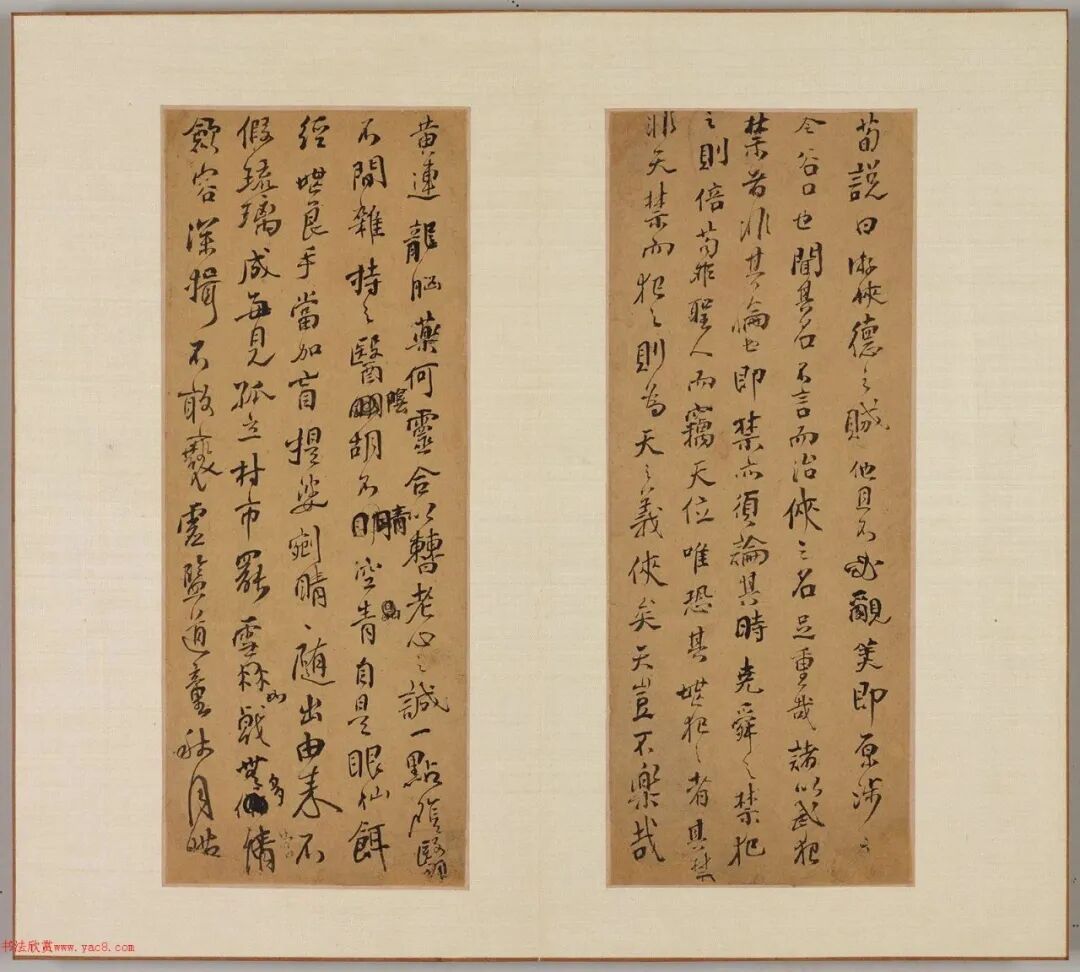 荀說曰游俠德之賊他且不必覼美即原涉之
令谷口也聞其名不言而治俠之名足重哉諸以武犯
禁者非其倫也即禁亦須論其時堯舜之禁犯
之則倍苟非聖人而竊天位唯恐其世犯之者其禁
非天禁而犯之則為天之義俠矣天豈不樂哉
黃連龍腦藥何靈合以轉老心之誠一點陰翳
不間雜持之醫陰胡名晴空青自是眼仙餌
經世良手當加盲提婆剜睛睛隨出由來不
假琉璃成每見孤立村市罷雪林如戟多情
斂容深揖不敢褻靈鑒道童秋月皓
书法欣赏www.yac8.com